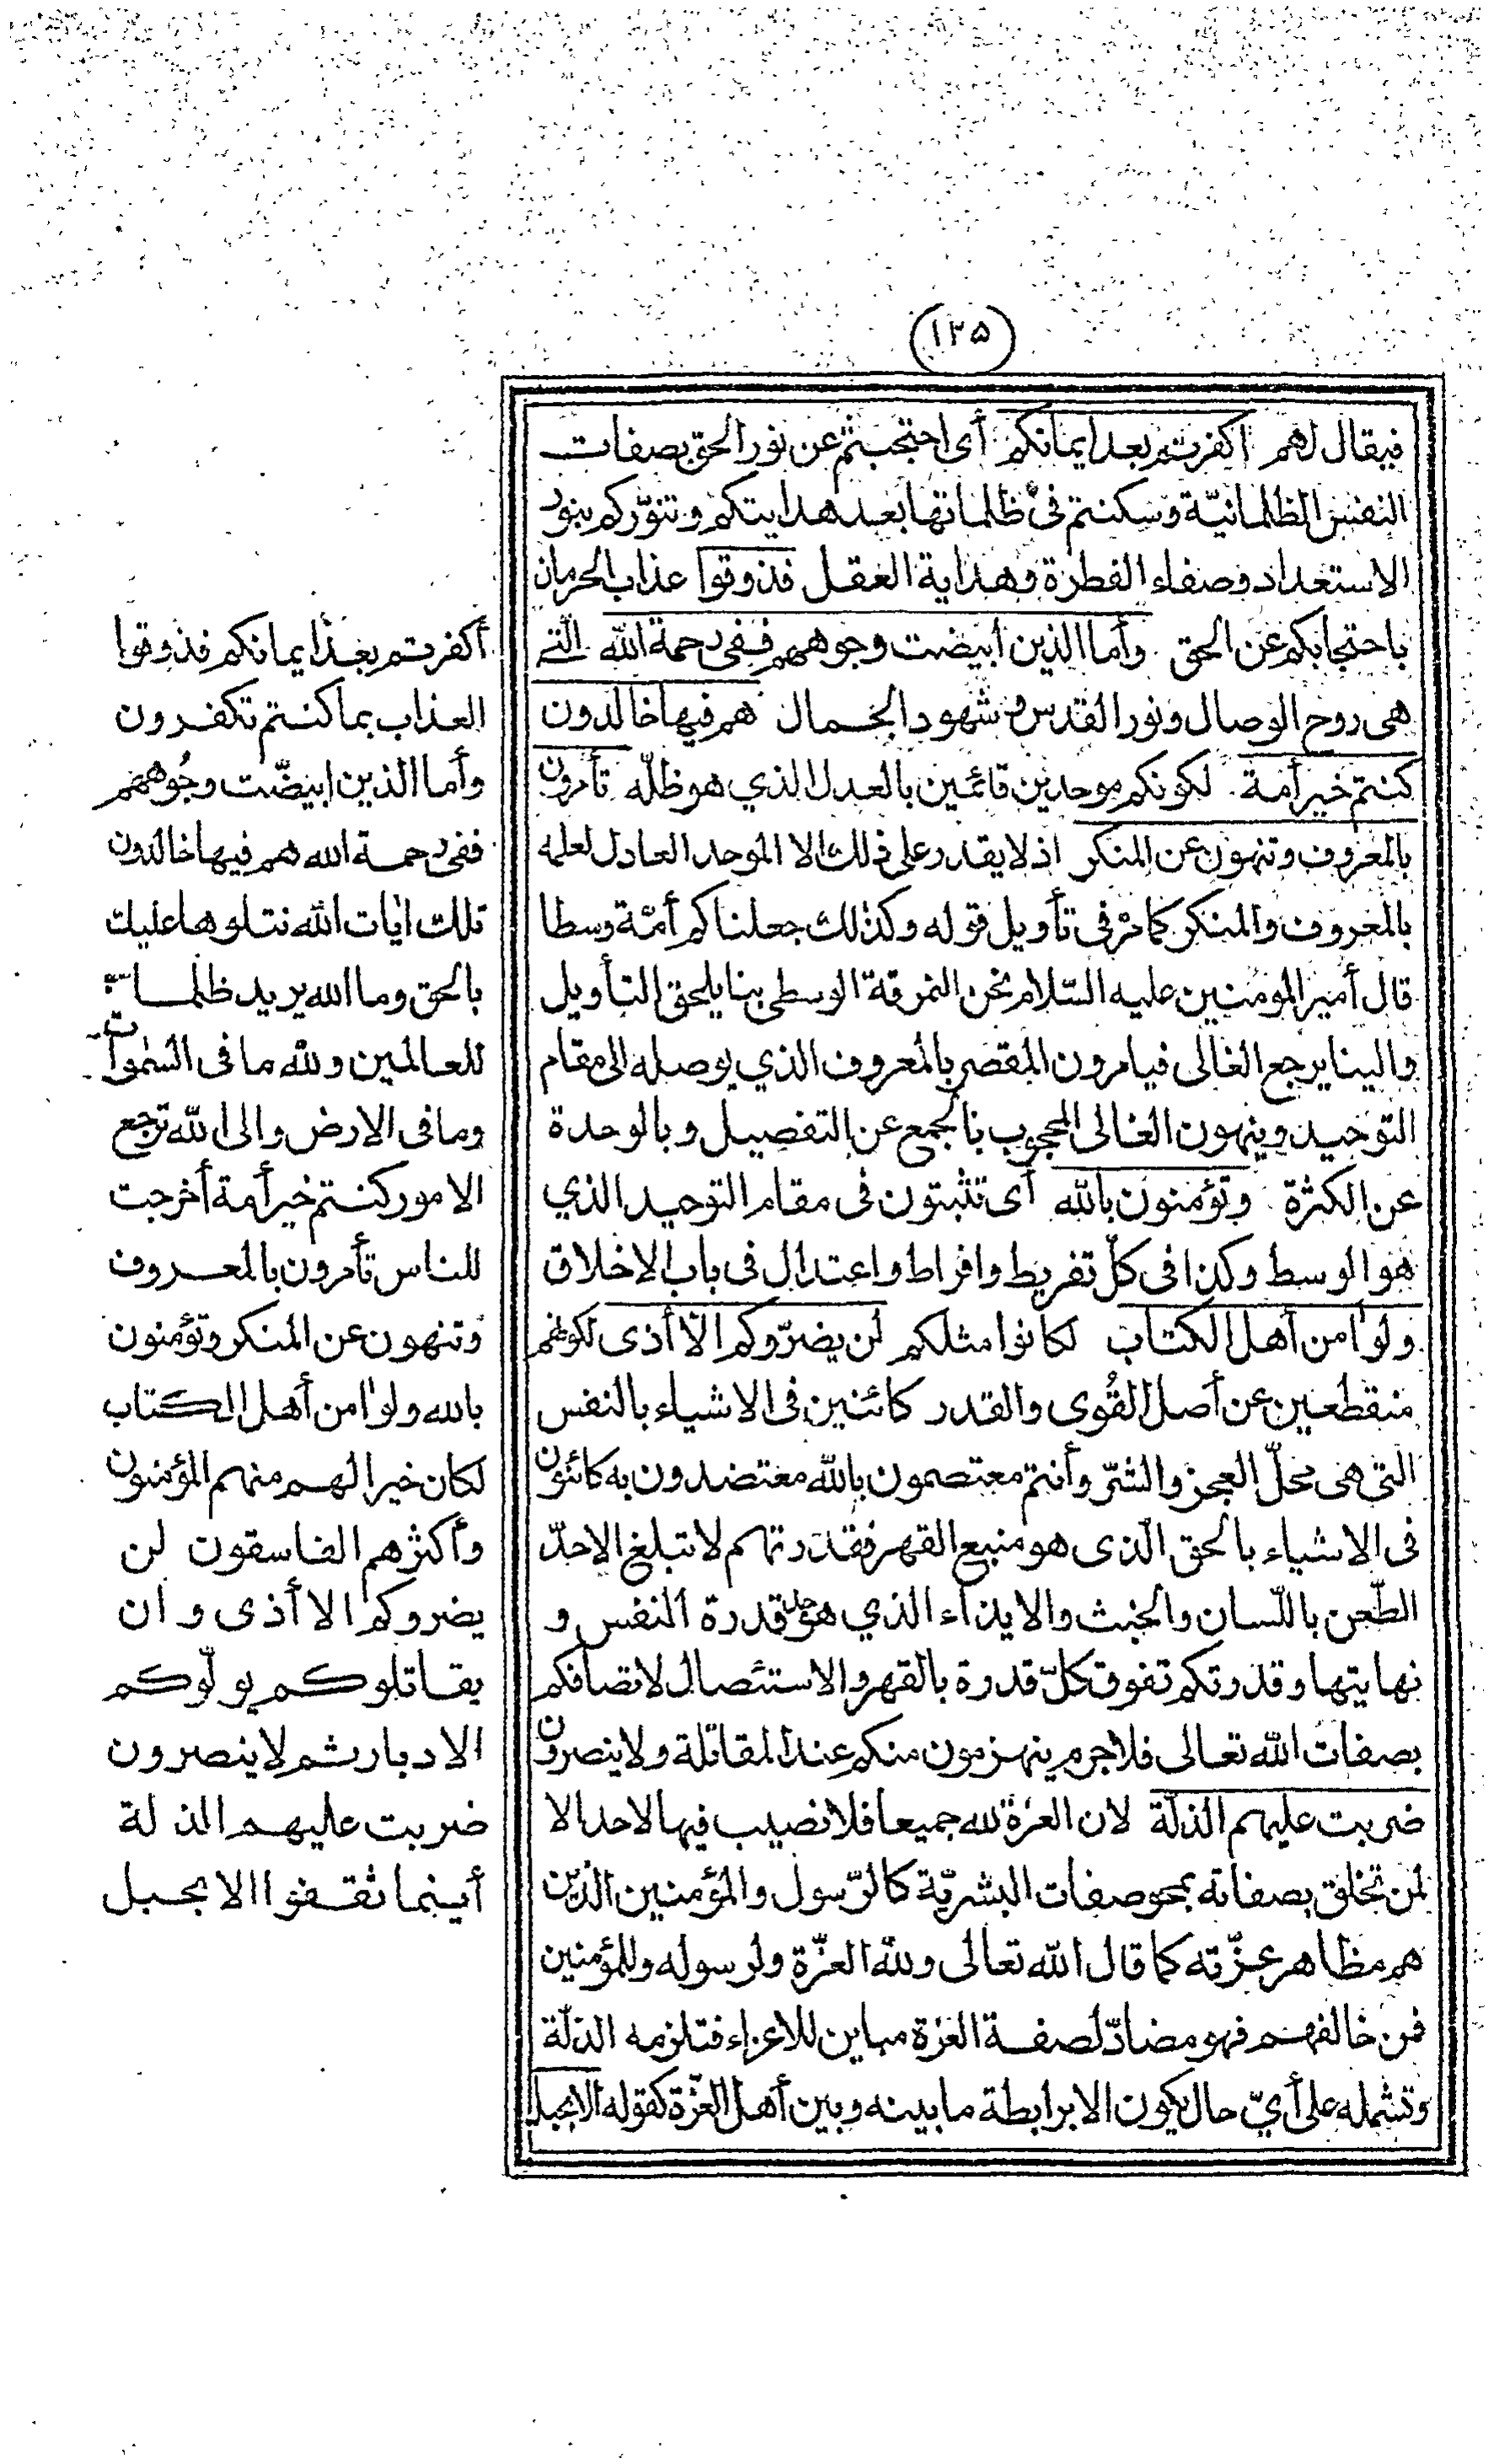 ١٢٥
فيقال لهم اكفرتم بعد ايمانكم أى احتجبتم عن نور الحق بصفات
النفس الظلمانيّة وسكنتم فى ظلماتها بعد هدايتكم وتنوّركم بنور
الاستعداد وصفاء الفطرة وهداية العقل فذوقوا عذاب الحرمان
باحتجابكم عن الحق وأما الذين ابيضت وجوههم ففى رحمة الله التى
هى روح الوصال ونور القدس وشهود الجمال هم فيها خالدون
كنتم خير أمة لكونكم موحدين قائمين بالعدل الذي هو ظلّه تأمرون
بالمعروف وتنهون عن المنكر اذ لا يقدر على ذلك الا الموحد العادل لعلمه
بالمعروف والمنكر كما مرّ فى تأويل قوله وكذلك جعلناكم أمّة وسطا
قال أمير المومنين عليه السّلام نحن النمرقة الوسطى بنا يلحق التأويل
والينا يرجع الغالى فيامرون المقصر بالمعروف الذي يوصله الى مقام
التوحيد وينهون الغالى المحجوب بالجمع عن التفصيل وبالوحدة
عن الكثرة وتؤمنون بالله أى تثبتون فى مقام التوحيد الذي
هو الوسط وكذا فى كلّ تفريط وافراط واعتدال فى باب الاخلاق
ولو اٰمن أهل الكتاب لكانوا مثلكم لن يضرّوكم الّا أذى لكونهم
منقطعين عن أصل القُوى والقدر كائنين فى الاشياء بالنفس
التى هى محلّ العجز والشرّ وأنتم معتصمون بالله معتضدون به كائنون
فى الاشياء بالحق الّذى هو منبع القهر فقدرتهم لا تبلغ الا حدّ
الطّعن باللّسان والخبث والايذاء الذي هو حد قدرة النفس و
نهايتها وقدرتكم تفوق كلّ قدرة بالقهر والاستئصال لاتصافكم
بصفات الله تعالى فلا جرم ينهزمون منكم عند المقاتلة ولا ينصرون
ضربت عليهم الذلّة لان العزة لله جميعا فلا نصيب فيها لاحد الا
لمن تخلق بصفاته بمحو صفات البشريّة كالرّسول والمؤمنين الذين
هم مظاهر عزّته كما قال الله تعالى ولله العزّة ولرسوله وللمؤمنين
فمن خالفهم فهو مضادّ لصفة العزة مباين للاعزاء فتلزمه الذلّة
وتشمله على أىّ حال يكون الا برابطة ما بينه وبين أهل العزّة كقوله الا بحبل
أكفرتم بعد ايمانكم فذوقوا
العذاب بما كنتم تكفرون
وأما الذين ابيضّت وجُوههم
ففى رحمة الله هم فيها خالدون
تلك اٰيات الله نتلوها عليك
بالحق وما الله يريد ظلما
للعالمين ولله ما فى السمٰوات
وما فى الارض والى الله ترجع
الامور كنتم خير أمة أخرجت
للناس تأمرون بالمعروف
وتنهون عن المنكر وتؤمنون
بالله ولو اٰمن أهل الكتاب
لكان خيرا لهم منهم المؤمنون
وأكثرهم الفاسقون لن
يضروكم الا أذى وان
يقاتلوكم يولّوكم
الادبار ثم لا ينصرون
ضربت عليهم الذلة
أينما ثقفوا الا بحبل